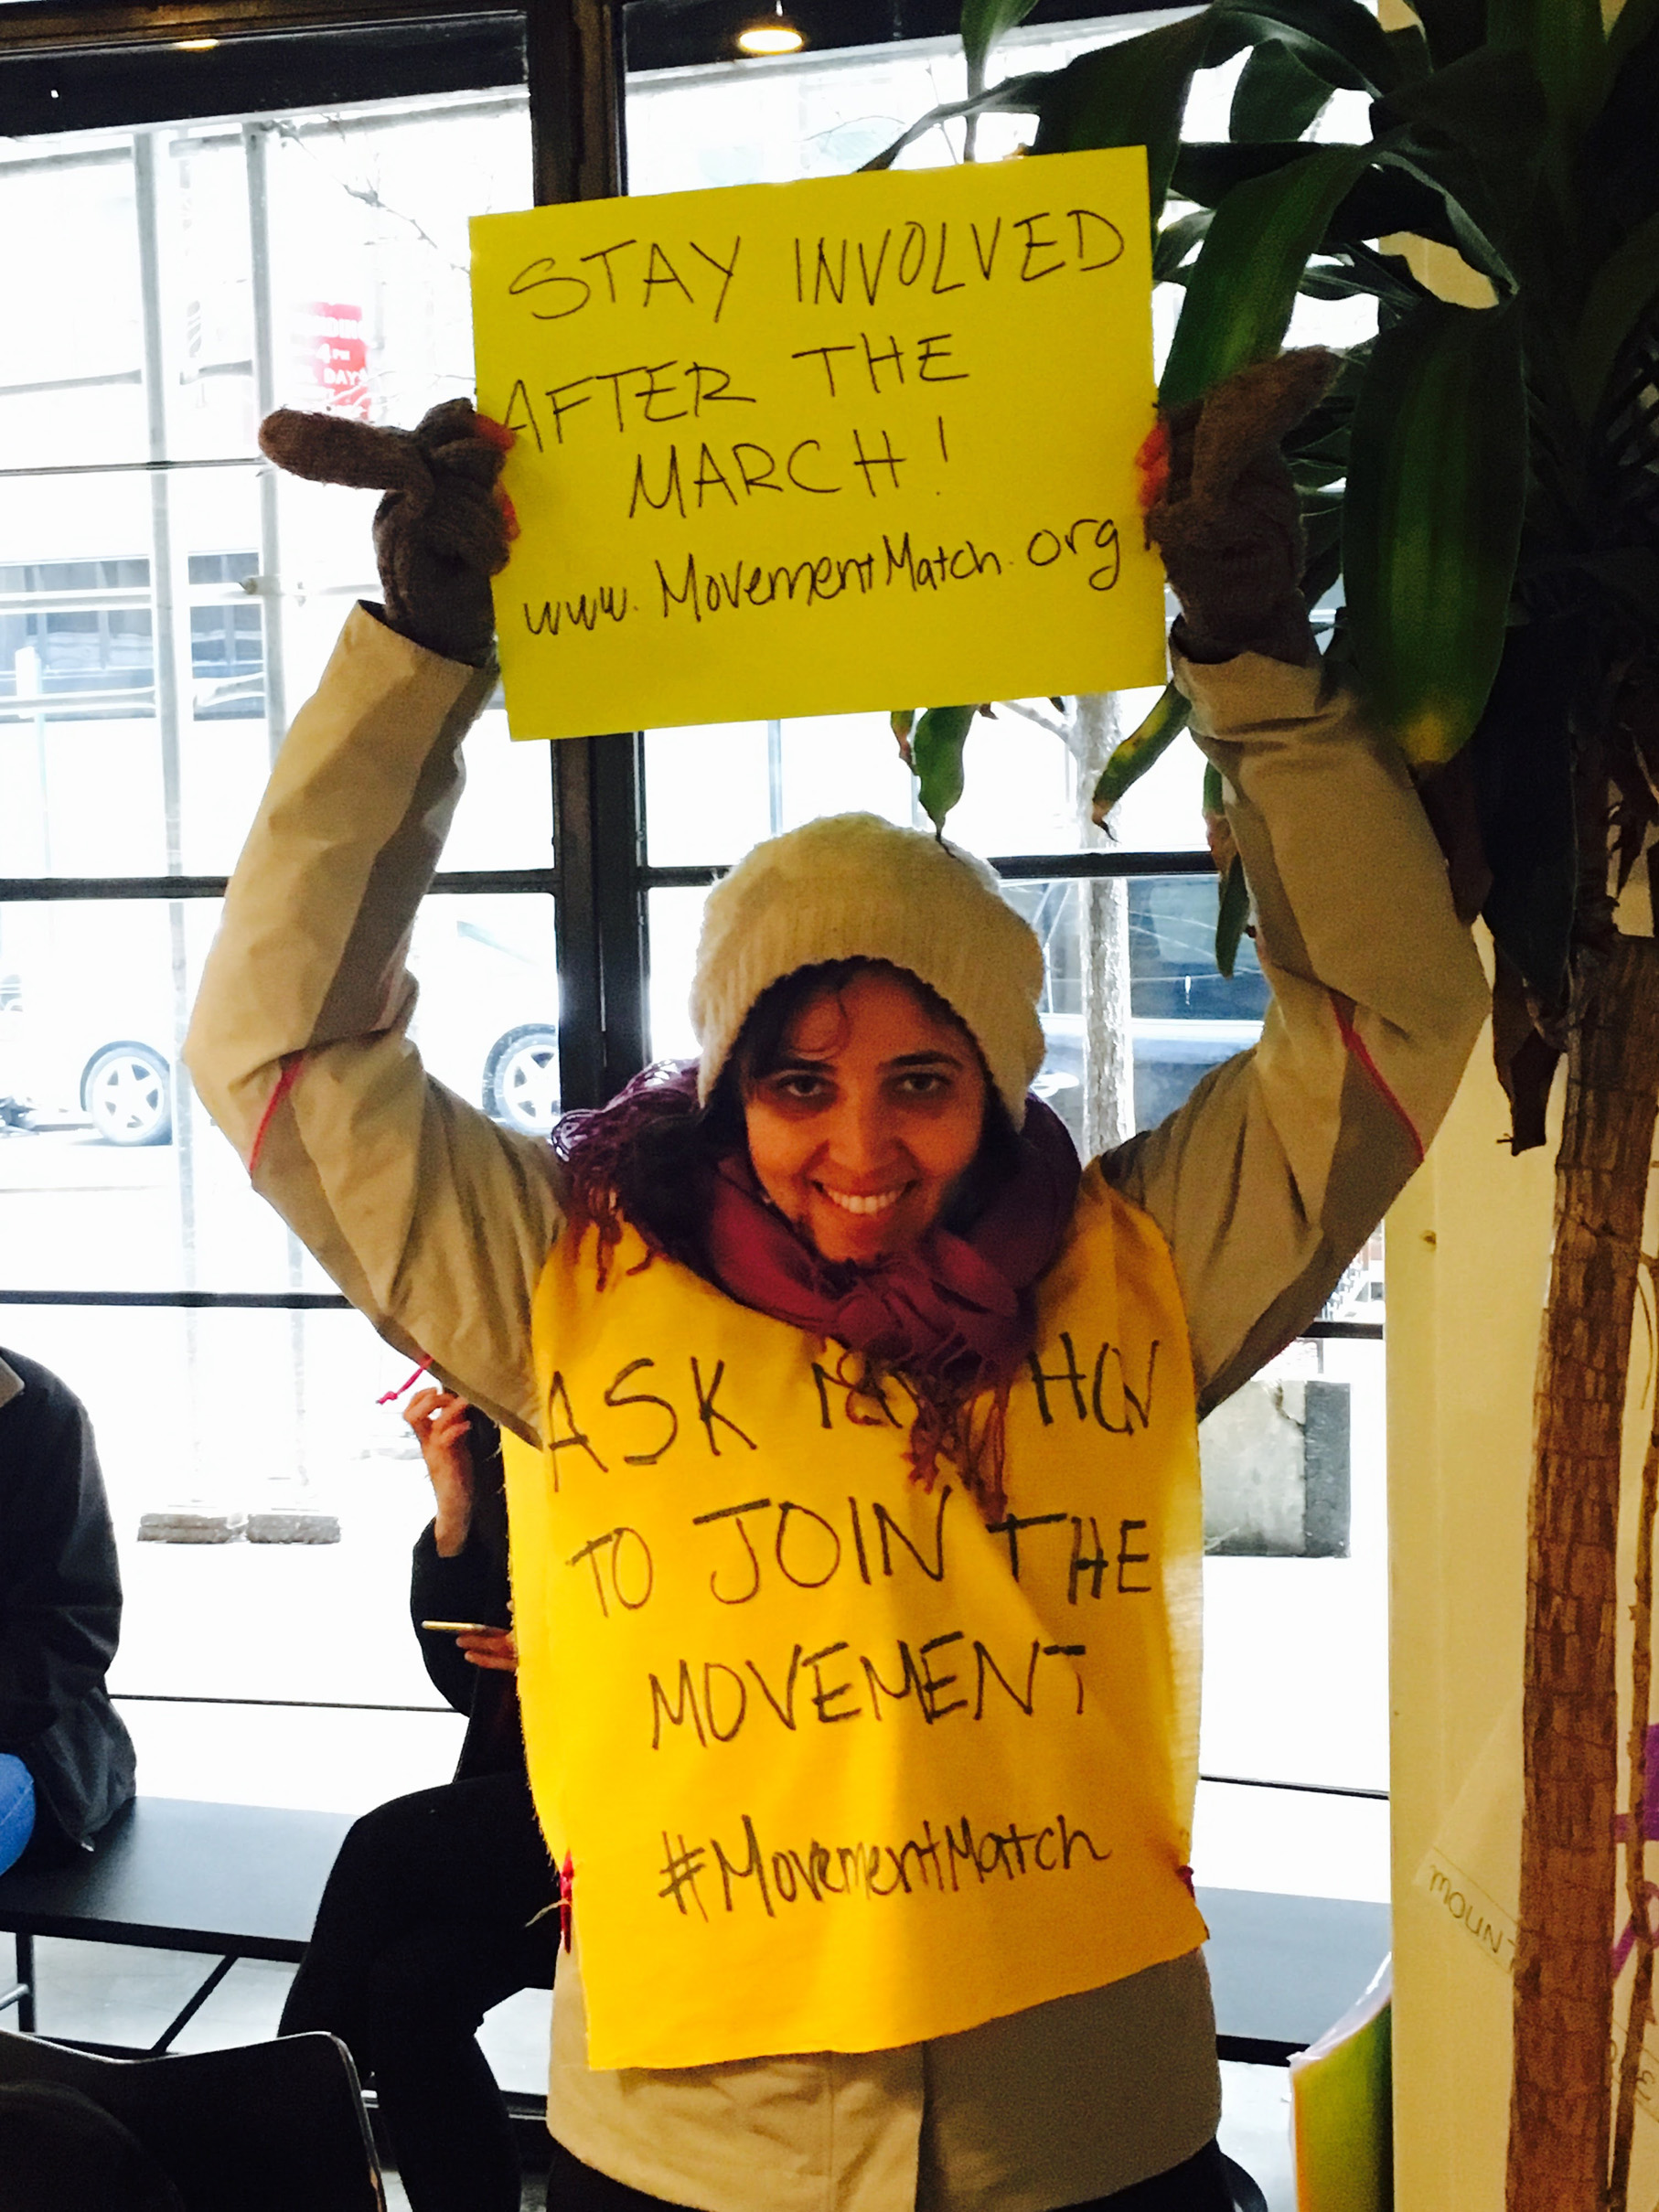 STAY INVOLVED
AFTER THE
MARCH!
www.MovementMatch.org
ASK HOW
TO JOIN THE
MOVEMENT
#MovementMatch
4PM
DAY
MOUNT